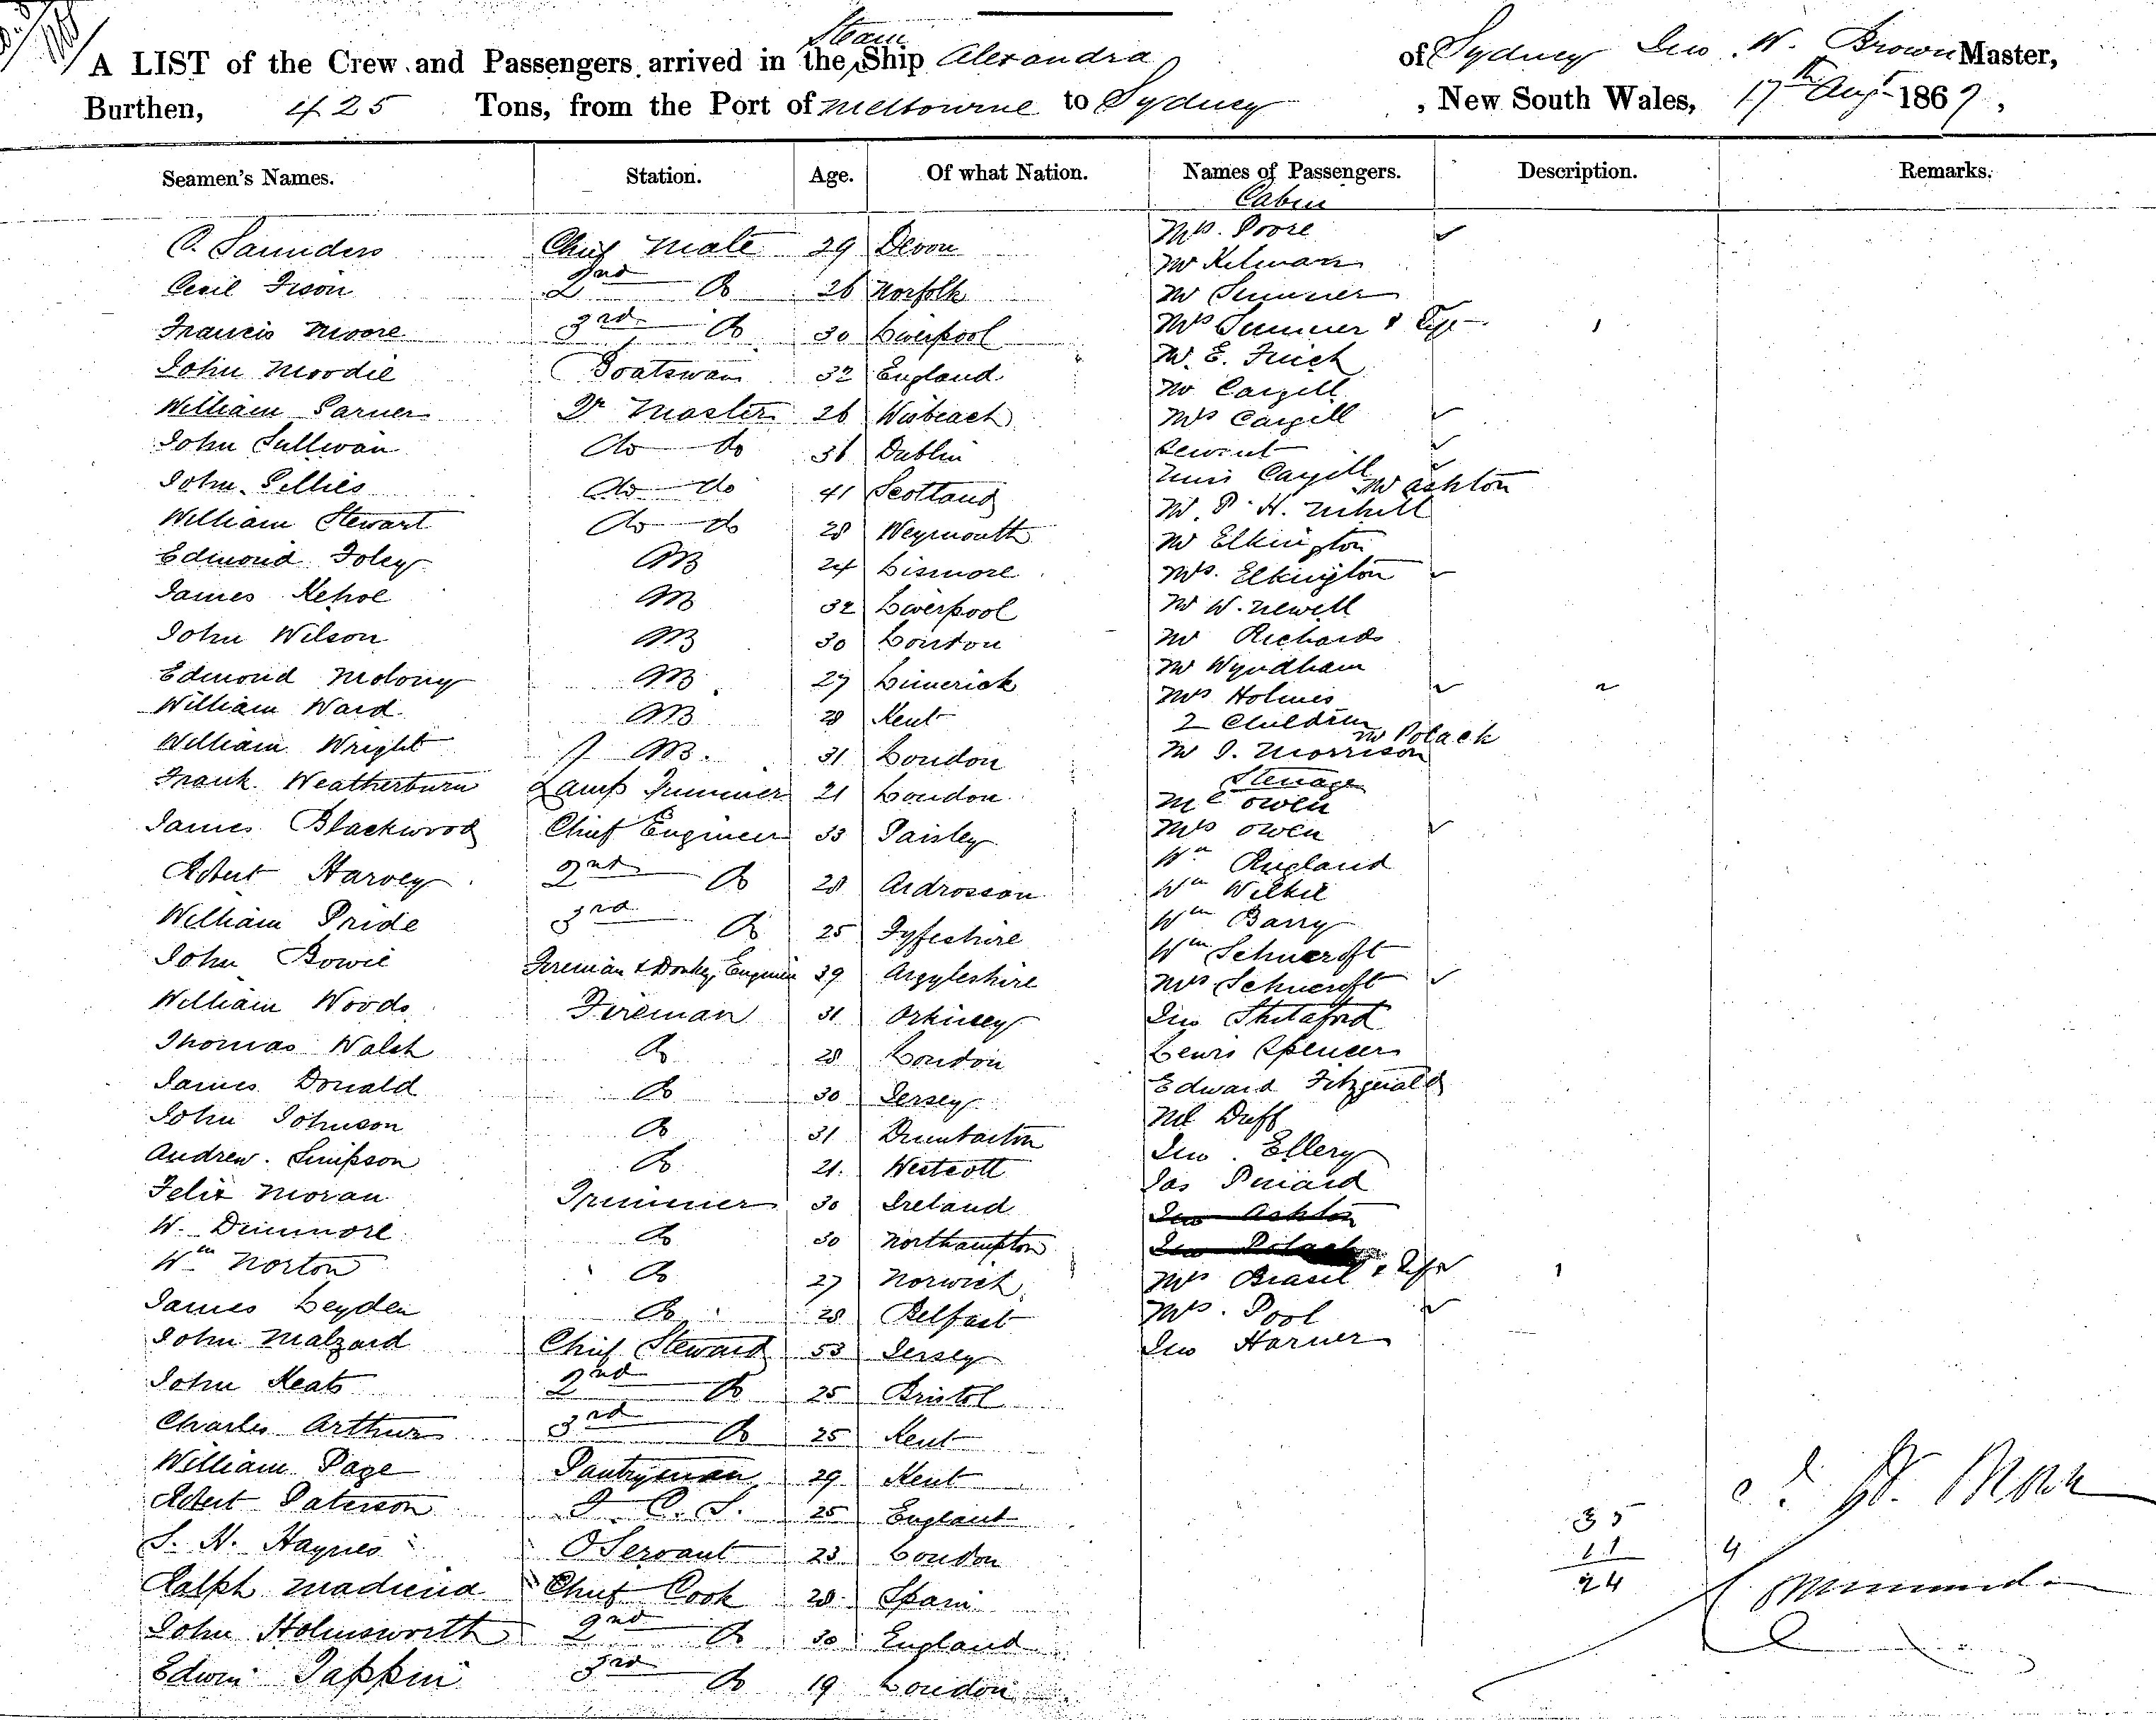 A LIST of the Crew and Passengers arrived in the Steam Ship Alexandra of Sydney Jno. W. Brown Master,
Burthen, 425 Tons, from the Port of Melbourne to Sydney, New South Wales, 17th Augt 1869,
Seamen's Names. Station. Age. Of what Nation. Names of Passengers. Description. Remarks.
Cabin
C. Saunders Chief Mate 29 Devon
Cecil Ireson 2nd Do 26 Norfolk
Francis Moore 3rd Do 30 Liverpool
John Moodie Boatswain 32 England
William Garner Qr Master 26 Wisbeach
John Sullivan do do 36 Dublin
John Gillies do do 41 Scotland
William Stewart do do 28 Weymouth
Edmond Foley AB 24 Lismore
James Kehoe AB 32 Liverpool
John Wilson AB 30 London
Edmond Molony AB 27 Limerick
William Ward AB 28 Kent
William Wright AB. 31 London
Frank Weatherburn Lamp Trimmer 21 London
James Blackwood Chief Engineer 33 Paisley
Robert Harvey 2nd Do 28 Ardrossan
William Pride 3rd Do 25 Fyfeshire
John Bowie Fireman & Donkey Engineer 39 Argyleshire
William Woods Fireman 31 Orkney
Thomas Walsh Do 28 London
James Donald Do 30 Jersey
John Johnson Do 31 Dumbarton
Andrew Simpson Do 21 Westcott
Felix Moran Trimmer 30 Ireland
W. Dinmore Do 30 Northampton
Wm Norton Do 27 Norwich
James Leyden Do 28 Belfast
John Malzard Chief Steward 53 Jersey
John Keats 2nd Do 25 Bristol
Charles Arthur 3rd Do 25 Kent
William Page Pantryman 29 Kent
Robert Paterson F. C. S. 25 England
S. H. Haynes O Servant 23 London
Ralph Madiena Chief Cook 28 Spain
John Holmsworth 2nd Do 30 England
Edwin Tappin 3rd Do 19 London
Mrs. Poore
Mr Kilman
Mr Sumner
Mrs Sumner & 1
Mr. E. Finch
Mr Cargill
Mrs Cargill
Servant
Miss Cargill
Mr Ashton
Mr. P. H.
Mr Elkington
Mrs. Elkington
Mr W. Newell
Mr Richards
Mr Wyndham
Mrs Holmes 2
2 Children
Mr Polack
Mr J. Morrison
Steerage
Mr Owen
Mrs Owen
Wm England
Wm Wilkie
Wm Barry
Wm Schucroft
Mrs Schucroft
Jno
Lewis Spencer
Edward Fitzgerald
Duff
Jno. Ellery
Jas
Jno Ashton
Jno Polack
Mrs Brasil & 1
Mrs. Pool
Jno Harner
35
11
24
4